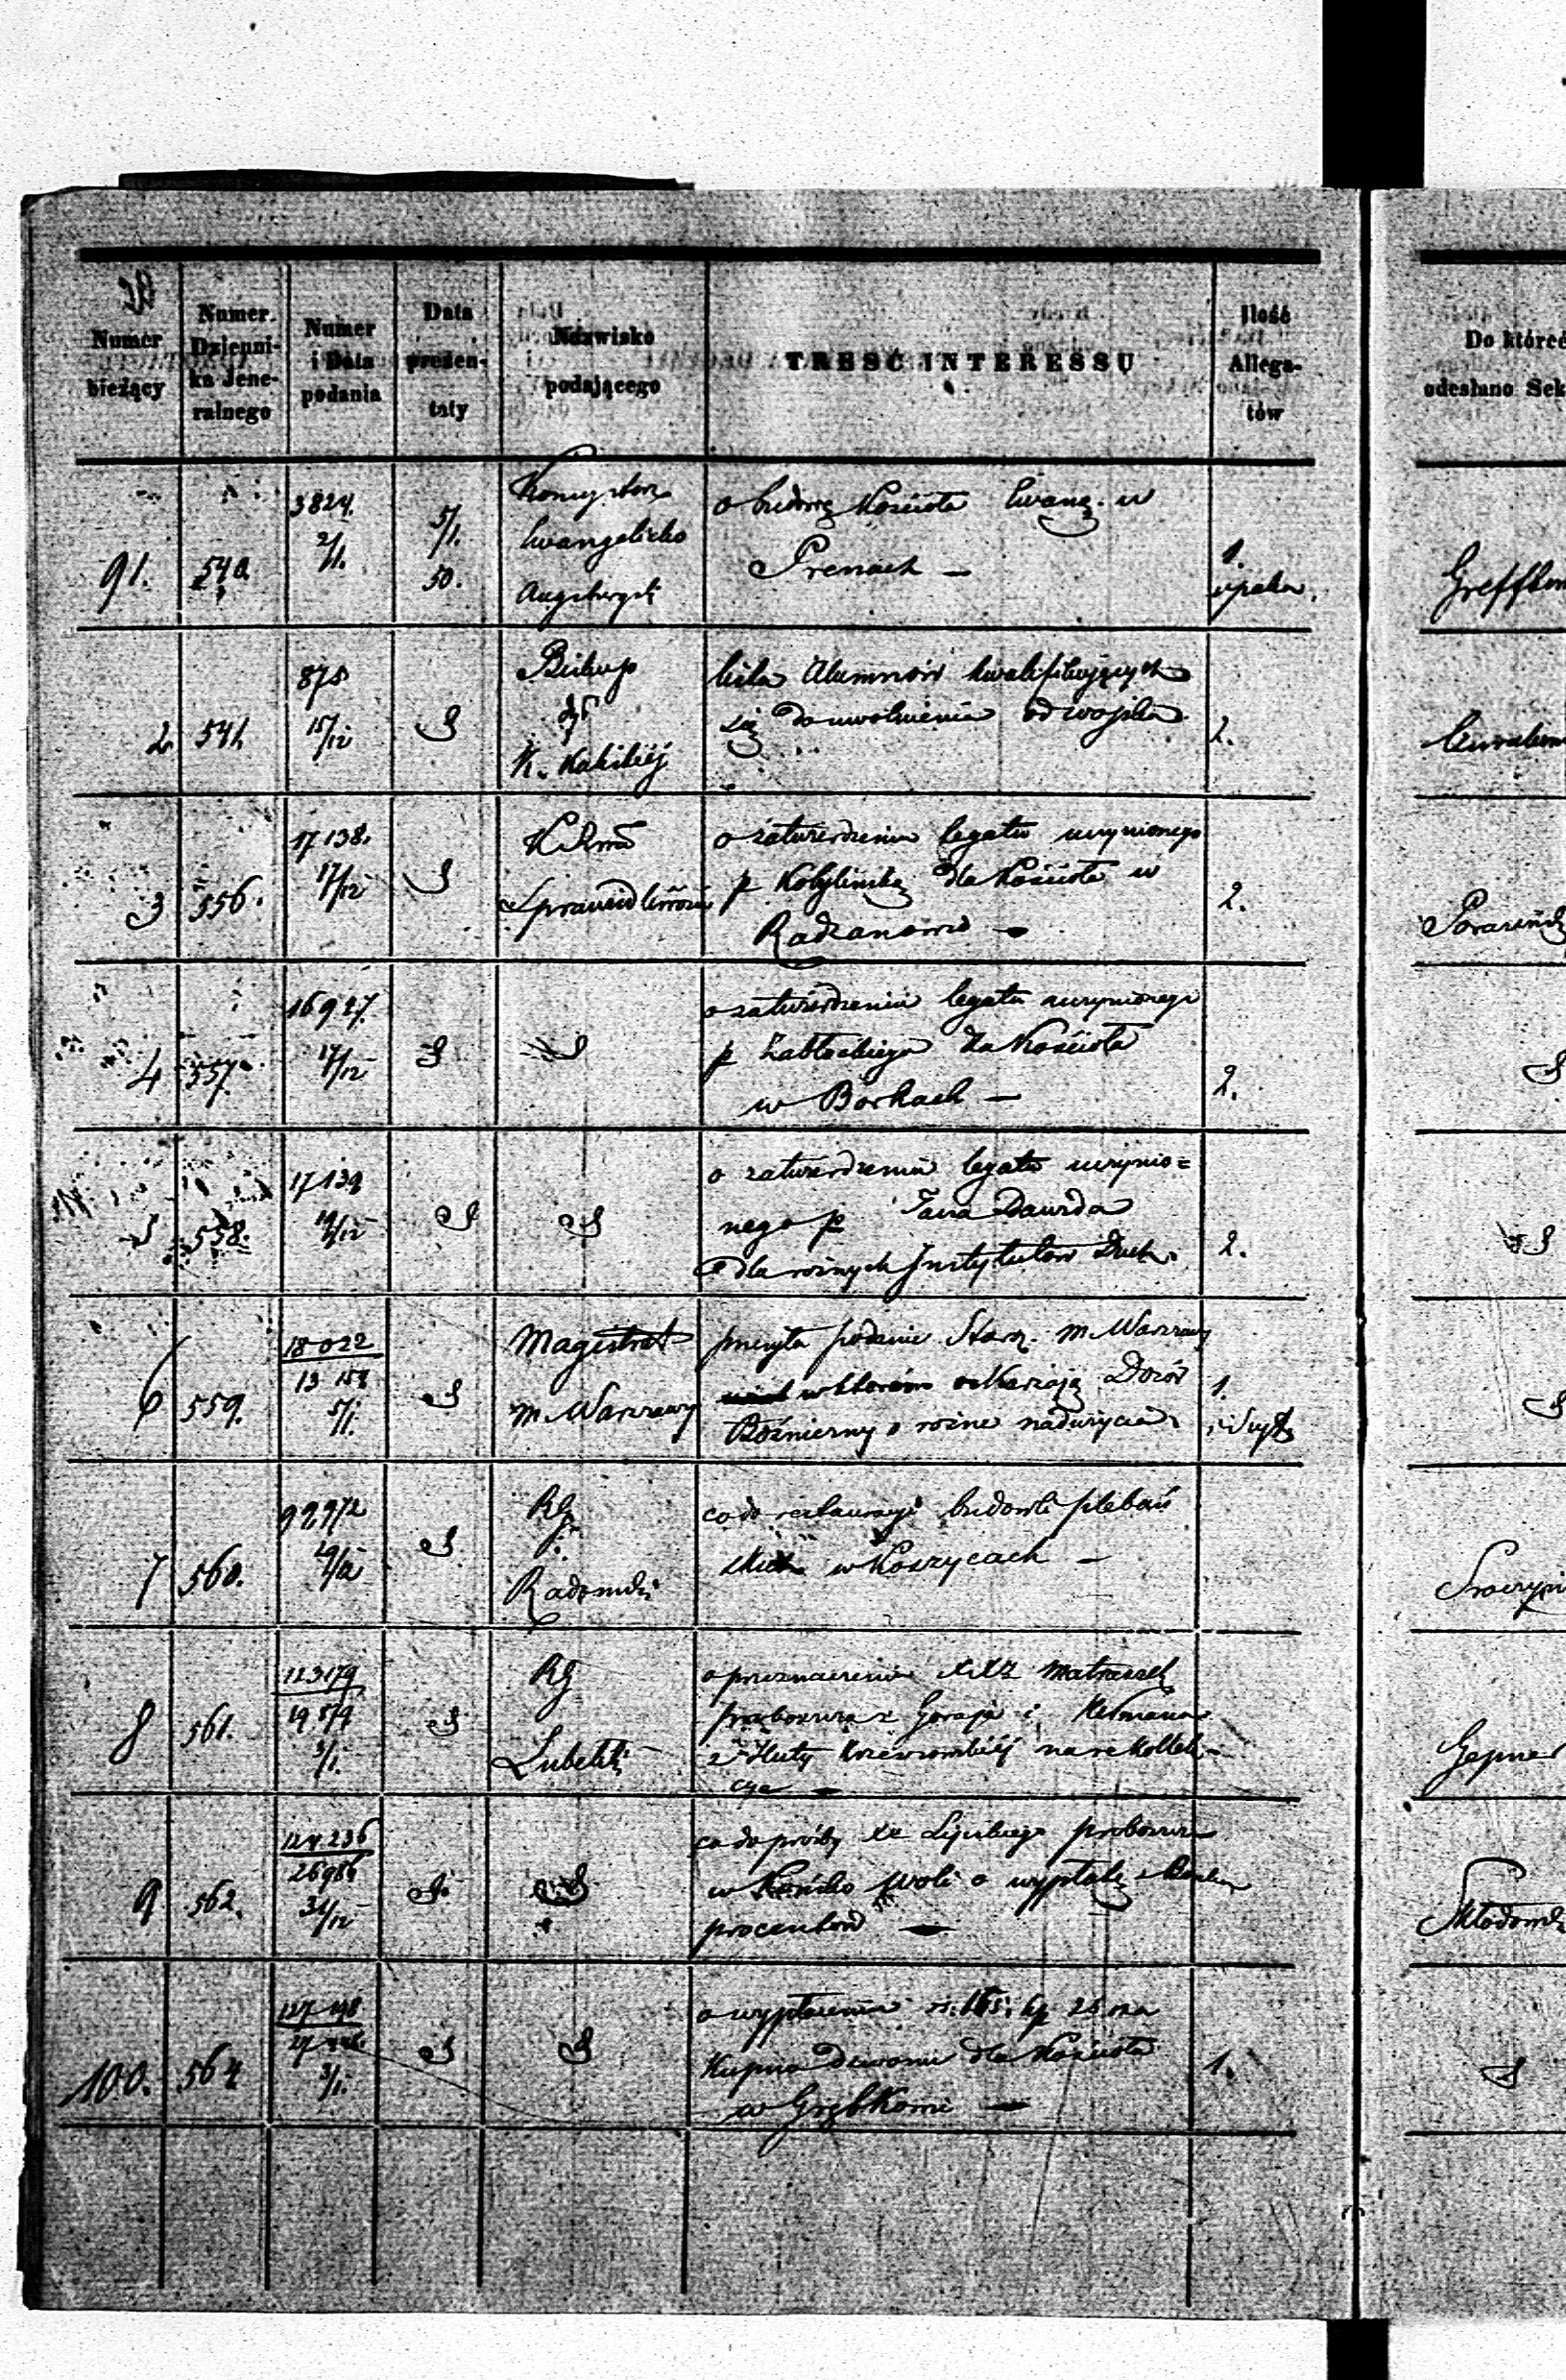 Numer bieżący
Numer Dziennika Jeneralnego
Numer i Data podania
Data prezentaty
Nazwisko podającego
TREŚĆ INTERESSU
Ilość Allegatów
Do któréj
odesłano Sek
91. 540. 3824. 2/1. 5/1. 50.
Konsystorz
Ewangelicko
Augsburgski
o budowę Kościoła Ewang. w
Prenach —
1.
Greffkow
2 541. 878 15/12
Biskup
dyc
K. Kaliskiej
lista Alumnów kwalifikujących
się do uwolnienia od wojska
2.
3 556. 17138. 17/12
K R
Sprawiedliwości
o zatwierdzenie legatu uczynionego
p Kobylinską dla Kościoła w
Radzanowie —
2.
4 557. 16927. 17/12
o zatwierdzenie legatu uczynionego
p Zabłockiego dla Kościoła
w Borkach —
2.
5 558. 17139 19/12
o zatwierdzenie legatu uczynio=
nego p Jana Dawida
dla różnych Instytutów Duch.
2.
6 559. 18022 5/1.
Magistrat
m. Warszawy
przesyła podanie Staroz. m. Warszawy
w którém oskarżają Dozór
Bóźniczny o różne nadużycia
1.
7 560. 99972 29/12
RG
Radomski
co do restauracyi budowli plebań
skich w Koszycach —
8 561. 123179 19579 3/1.
RG
Lubelski
o przeznaczenie XXZ Matraszek
proboszcza z Goraja i Hermana
z Huty Krzeszowskiej na rekollek-
cye —
Gepner
9 562. 124236 26986 31/12
co do prośby Xa Lipskiego proboszcza
w Końsko woli o wypłatę z Banku
procentów —
Młodows
100. 564 3/1.
o wypłacenie rs. 165. kp 25 na
kupno dzwonu dla Kościoła
w Grębkowie —
1.